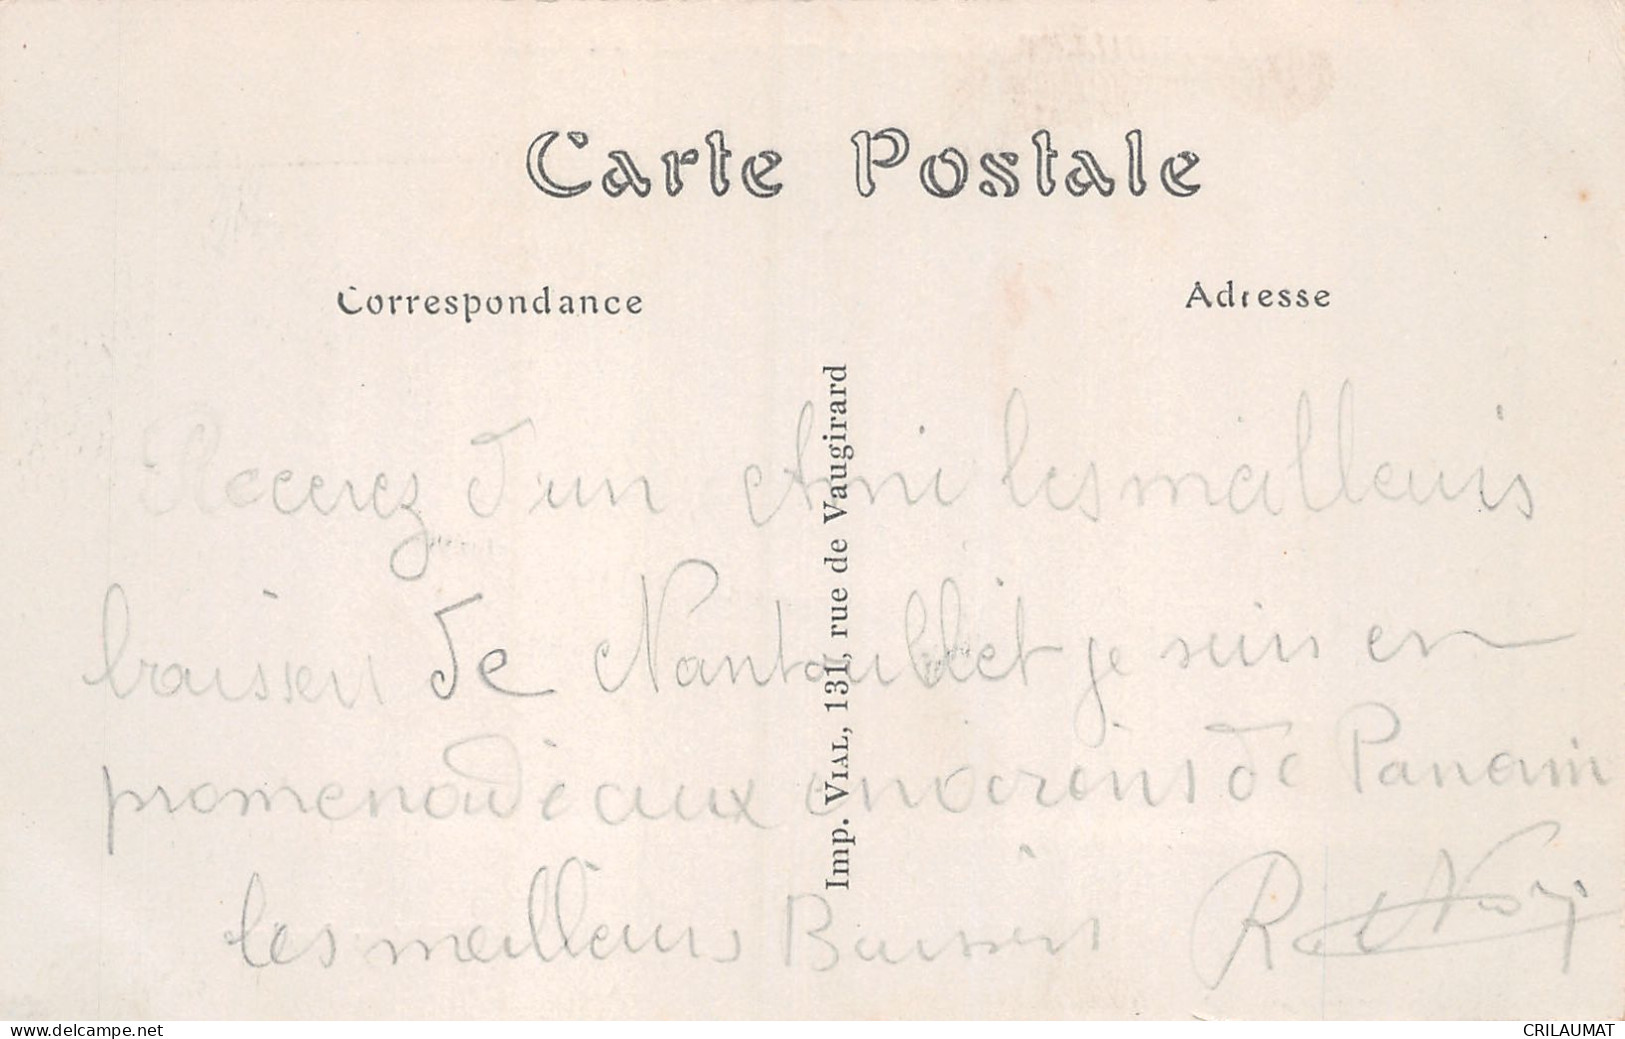 Carte Postale
Correspondance
Adresse
Imp. VIAL, 131, rue de Vaugirard
Recerez d'un Ami les meilleurs
baisser de Nantouillet je suis en
promenade aux environs de Panam
les meilleurs Baisers
www.delcampe.net
CRILAUMAT